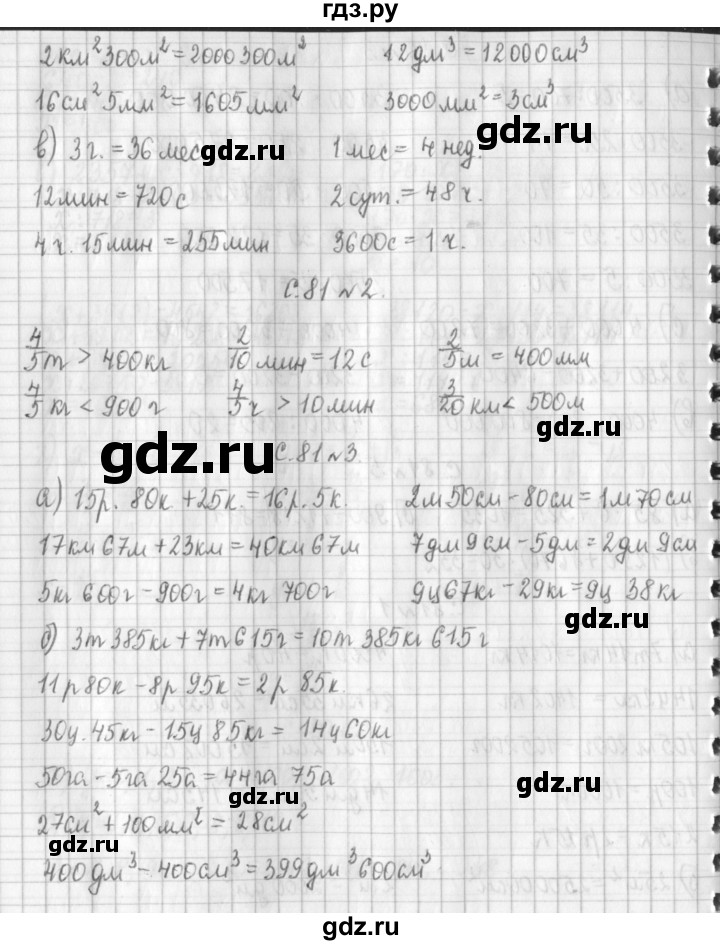 гдз.ру
2км² 300м² = 2000300м² 12дм³ = 12000см³
16см² 5мм² = 1605мм² 3000мм² = 3см³
gdz.ru
в) 3г. = 36 мес 1 мес = 4 нед.
gdz.ru
12мин = 720с 2 сут. = 48 ч.
4 ч. 15мин = 255мин 3600с = 1 ч.
gdz.ru
С.81 №2.
4/5 т > 400кг 2/10 мин = 12с 2/5 м = 400мм
4/5 кг < 900г 4/5 ч > 10мин 3/20 км < 500м
gdz.ru
gdz.ru
С.81 №3.
а) 15р. 80к. + 25к. = 16р. 5к. 2м 50см - 80см = 1м 70см
gdz.ru
17км 67м + 23км = 40км 67м 7дм 9см - 5дм = 2дм 9см
5кг 600г - 900г = 4кг 700г 9ц 67кг - 29кг = 9ц 38кг
gdz.ru
gdz.ru
б) 3т 385кг + 7т 615г = 10т 385кг 615г
11р 80к - 8р 95к = 2р 85к.
30ц. 45кг - 15ц 85кг = 14ц 60кг
50га - 5га 25а = 44га 75а
gdz.ru
gdz.ru
27см² + 100мм² = 28см²
gdz.ru
400дм³ - 400см³ = 399дм³ 600см³
gdz.ru